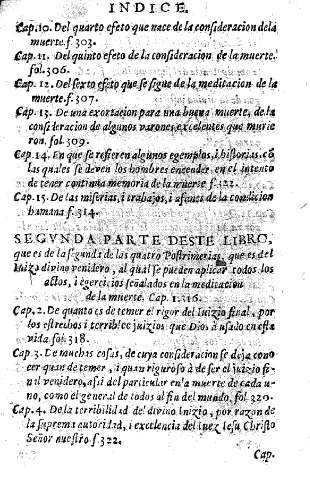 INDICE.
Cap. 10. Del quarto efeto que nace de la consideracion dela
muerte. f. 303.
Cap. 11. Del quinto efeto de la consideracion de la muerte.
fol. 306.
Cap. 12. Del sexto efeto que se sigue de la meditacion de la
muerte. f. 307.
Cap. 13. De una exortacion para una buena muerte, de la
consideracion de algunos varones excelentes que murie
ron. fol. 309.
Cap. 14. En que se refieren algunos egemplos, i historias. cõ
las quales se deven los hombres encender en el intento
de tener continua memoria de la muerte f.
Cap. 15. De las miserias, i trabajos, i afanes de la condicion
humana f. 314.
SEGUNDA PARTE DESTE LIBRO,
que es de la segunda de las quatro Postrimerias, que es del
Iuizo divino venidero, al qual se pueden aplicar todos los
actos, i egercicios señalados en la meditacion
de la muerte. Cap. 1. 316.
Cap. 2. De quanto es de temer el rigor del Iuizio final, por
los estrechos i terribles juizios que Dios à usado en esta
vida. fol. 318.
Cap. 3. De muchas cosas, de cuya consideracion se deja cono
cer quan de temer, i quan riguroso à de ser el juizio fi-
nal venidero, assi del particular en la muerte de cada u-
no, como el general de todos al fin del mundo. fol. 320.
Cap. 4. De la terribilidad del divino Iuizio, por razon de
la suprema autoridad, i excelencia del Iuez Iesu Christo
Señor nuestro. f. 322.
Cap.